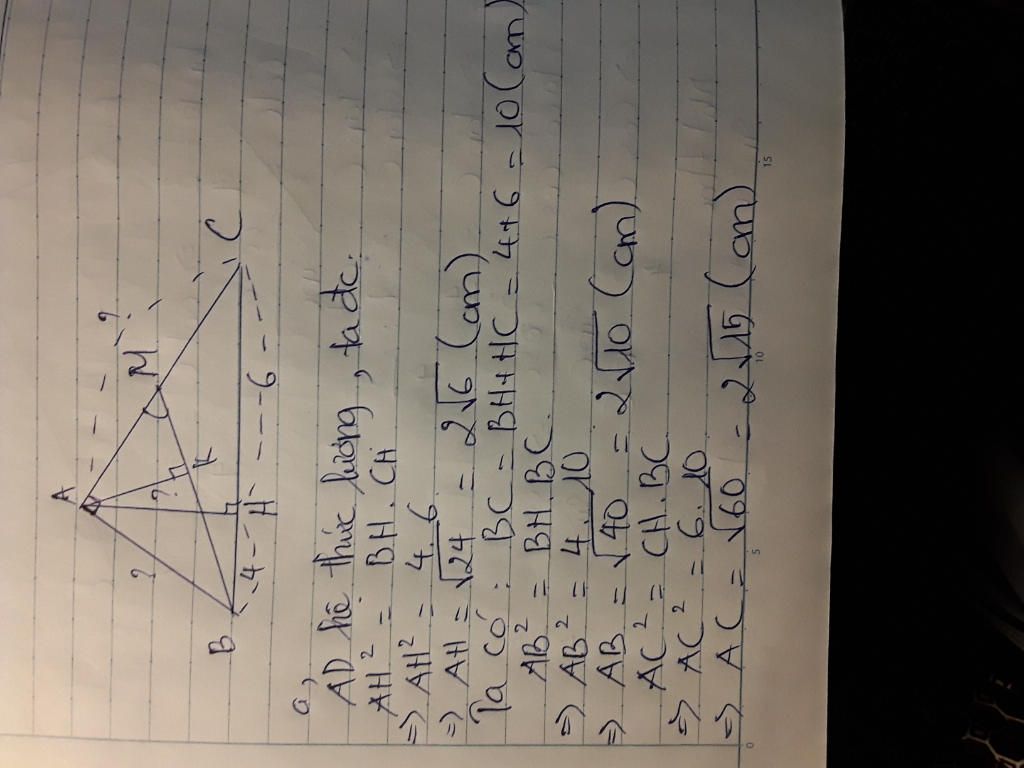 A
?
?
M
?
K
B
4
H
6
C
a,
AD hệ thức lượng, ta đc:
AH² = BH.CH
=> AH² = 4.6
=> AH = √24 = 2√6 (cm)
Ta có: BC = BH+HC = 4+6 = 10 (cm)
AB² = BH.BC
=> AB² = 4.10
=> AB = √40 = 2√10 (cm)
AC² = CH.BC
=> AC² = 6.10
=> AC = √60 = 2√15 (cm)
0
5
10
15